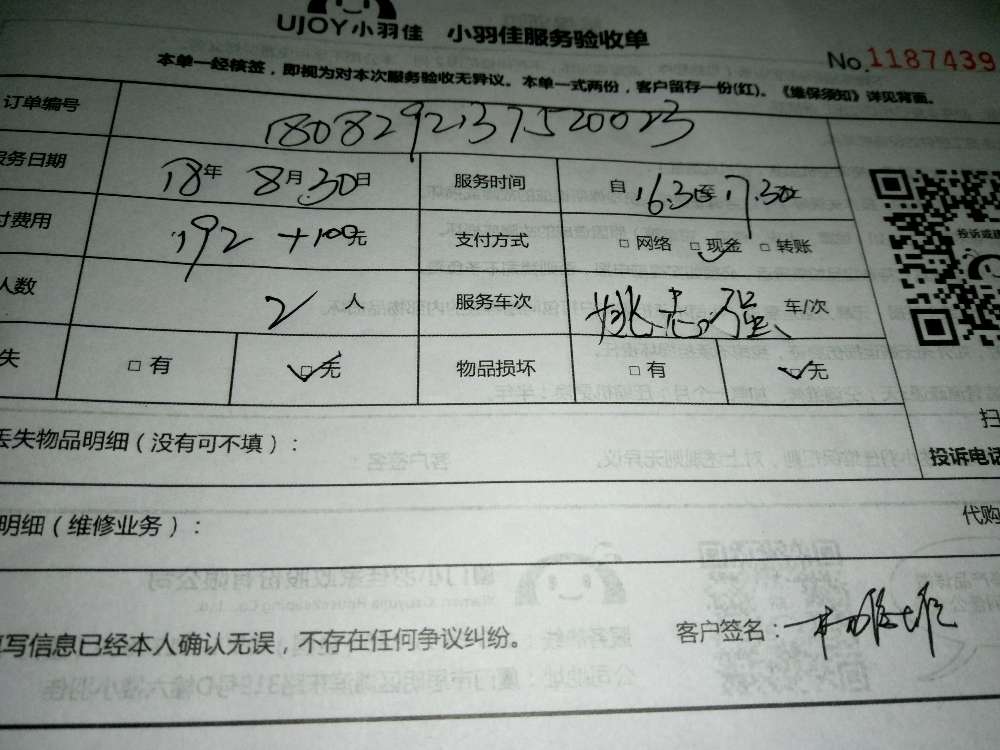 UJOY小羽佳 小羽佳服务验收单
No.1187439
本单一经核签，即视为对本次服务验收无异议。本单一式两份，客户留存一份(红)。《维保须知》详见背面。
订单编号 1808292137520023
服务日期 18年 8月30日 服务时间 自16:30至17:30
付费用 192+100元 支付方式 □网络 □现金 □转账
投诉或
人数 2人 服务车次 姚志强 车/次
失 □有 □无 物品损坏 □有 □无
扫
丢失物品明细（没有可不填）：
投诉电话
明细（维修业务）：
代购
填写信息已经本人确认无误，不存在任何争议纠纷。
客户签名：